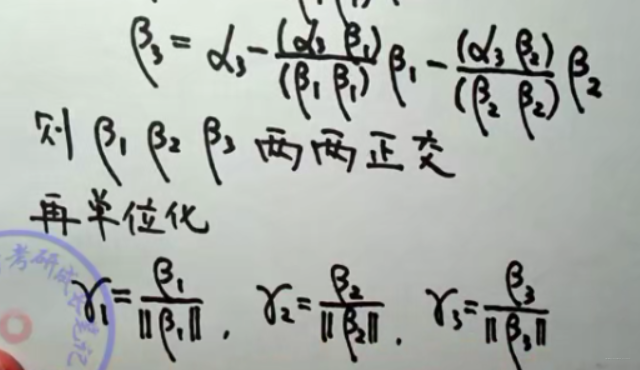 β₃ = α₃ - (α₃ β₁)/(β₁ β₁) β₁ - (α₃ β₂)/(β₂ β₂) β₂
则 β₁ β₂ β₃ 两两正交
再单位化
γ₁ = β₁/‖β₁‖ , γ₂ = β₂/‖β₂‖ , γ₃ = β₃/‖β₃‖
考研
笔记